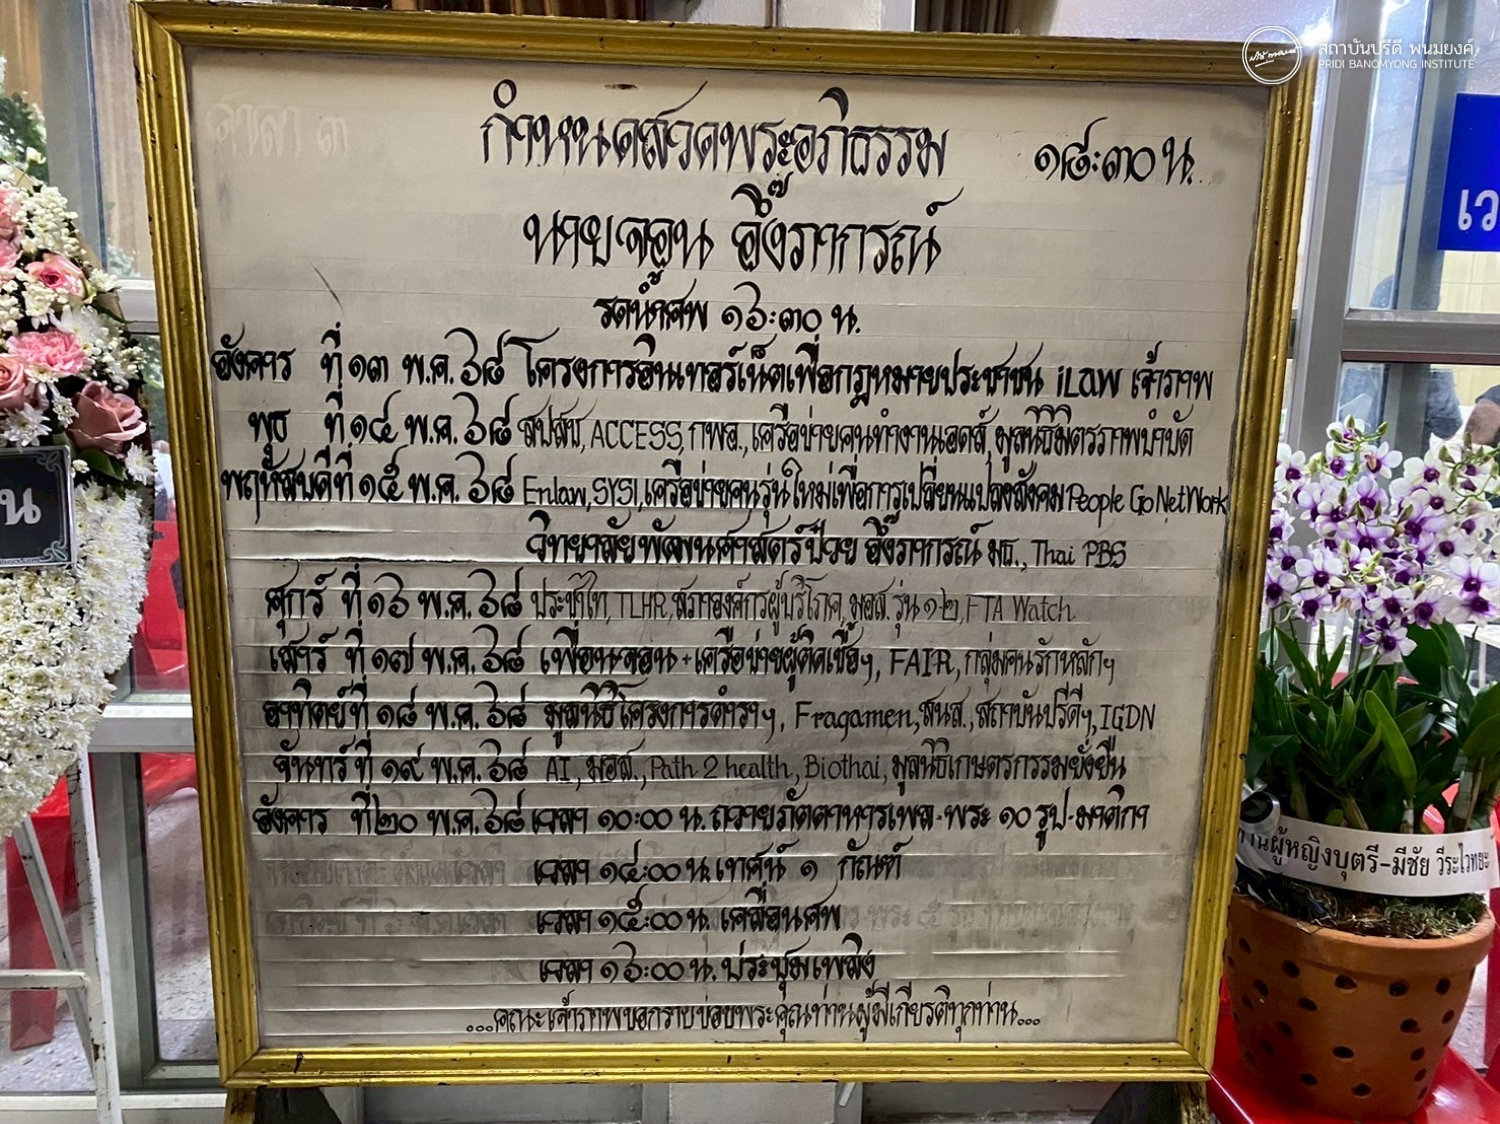 สถาบันปรีดี พนมยงค์
PRIDI BANOMYONG INSTITUTE
ศาลา ๓
กำหนดสวดพระอภิธรรม ๑๘:๓๐ น.
นายจอน อึ๊งภากรณ์
รดน้ำศพ ๑๖:๓๐ น.
อังคาร ที่ ๑๓ พ.ค. ๖๘ โครงการอินเทอร์เน็ตเพื่อกฎหมายประชาชน iLaw เจ้าภาพ
พุธ ที่ ๑๔ พ.ค. ๖๘ สปสช, ACCESS, กพอ., เครือข่ายคนทำงานเอดส์, มูลนิธิมิตรภาพบำบัด
พฤหัสบดีที่ ๑๕ พ.ค. ๖๘ Enlaw, SYSI, เครือข่ายคนรุ่นใหม่เพื่อการเปลี่ยนแปลงสังคม People Go NetWork
วิทยาลัยพัฒนศาสตร์ป๋วย อึ๊งภากรณ์ มธ., Thai PBS
ศุกร์ ที่ ๑๖ พ.ค. ๖๘ ประชาไท, TLHR, สภาองค์กรผู้บริโภค, มอส. รุ่น ๑๒, FTA Watch
เสาร์ ที่ ๑๗ พ.ค. ๖๘ เพื่อนจอน + เครือข่ายผู้ติดเชื้อฯ, FAIR, กลุ่มคนรักหลักฯ
อาทิตย์ที่ ๑๘ พ.ค. ๖๘ มูลนิธิโครงการตำราฯ, Fragamen, สนส., สถาบันปรีดีฯ, IGDN
จันทร์ ที่ ๑๙ พ.ค. ๖๘ AI, มอส., Path 2 health, Biothai, มูลนิธิเกษตรกรรมยั่งยืน
อังคาร ที่ ๒๐ พ.ค. ๖๘ เวลา ๑๐:๐๐ น. ถวายภัตตาหารเพล-พระ ๑๐ รูป-มาติกา
เวลา ๑๔:๐๐ น. เทศน์ ๑ กัณฑ์
เวลา ๑๕:๐๐ น. เคลื่อนศพ
เวลา ๑๖:๐๐ น. ประชุมเพลิง
...คณะเจ้าภาพขอกราบขอบพระคุณท่านผู้มีเกียรติทุกท่าน...
น
เว
ผู้หญิงบุตรี-มีชัย วีระไวทยะ